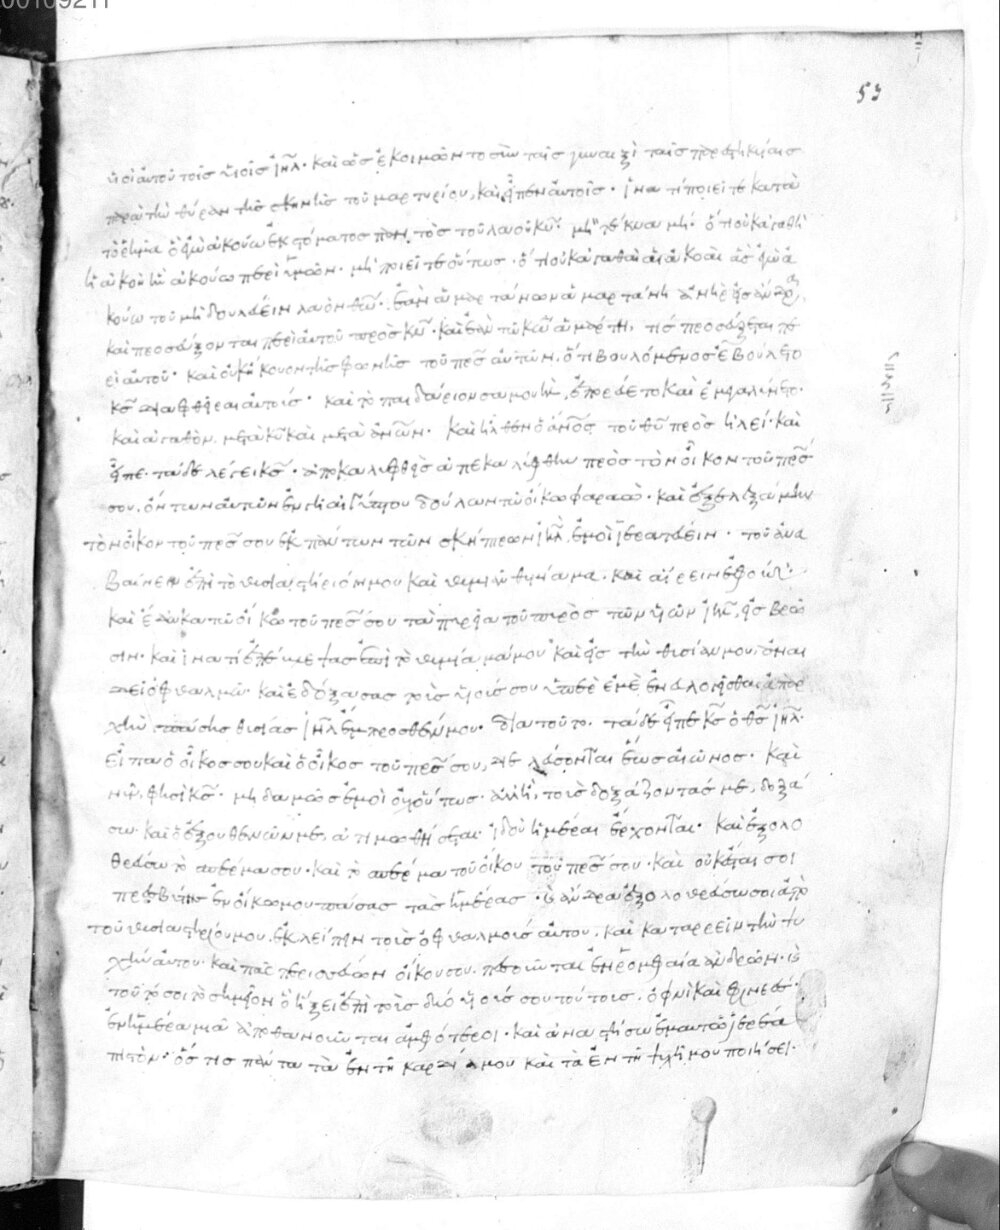 00109211
53
υἱοὶ αὐτοῦ τοῖς υἱοῖς ἰη̅λ· καὶ ὡς ἐκοιμῶντο σὺν ταῖς γυναιξὶ ταῖς παρεστηκυίαις
παρὰ τὴν θύραν τῆς σκηνῆς τοῦ μαρτυρίου, καὶ εἶπεν αὐτοῖς· ἵνα τί ποιεῖτε κατὰ
τὸ ῥῆμα ὃ ἐγὼ ἀκούω ἐκ στόματος παντὸς τοῦ λαοῦ κυ̅· μὴ τέκνα μή· ὅτι οὐκ ἀγαθὴ
ἡ ἀκοὴ ἣν ἀκούω περὶ ὑμῶν· μὴ ποιεῖτε οὕτως· ὅτι οὐκ ἀγαθαὶ αἱ ἀκοαὶ ἃς ἐγὼ ἀ
κούω τοῦ μὴ δουλεύειν λαὸν θω̅· ἐὰν ἁμαρτάνων ἁμαρτάνη ἀνὴρ εἰς ἄνδρα,
καὶ προσεύξονται περὶ αὐτοῦ πρὸς κν̅· καὶ ἐὰν τῷ κω̅ ἁμάρτη, τίς προσεύξεται πε
ρὶ αὐτοῦ· καὶ οὐκ ἤκουον τῆς φωνῆς τοῦ πρς̅ αὐτῶν, ὅτι βουλόμενος ἐβούλετο
κς̅ διαφθεῖραι αὐτούς· καὶ τὸ παιδάριον σαμουὴλ, ἐπορεύετο καὶ ἐμεγαλύνετο·
καὶ ἀγαθὸν, μετὰ κυ̅ καὶ μετὰ ἀνω̅ν· καὶ ἦλθεν ὁ ἀνο̅ς τοῦ θυ̅ πρὸς ἡλεί· καὶ
εἶπε· τάδε λέγει κς̅· ἀποκαλυφθεὶς ἀπεκαλύφθην πρὸς τὸν οἶκον τοῦ πρς̅
σου, ὄντων αὐτῶν ἐν γῆ αἰγύπτου δούλων τῷ οἴκω φαραώ· καὶ ἐξελεξάμην
τὸν οἶκον τοῦ πρς̅ σου ἐκ πάντων τῶν σκήπτρων ἰη̅λ, ἐμοὶ ἱερατεύειν· τοῦ ἀνα
βαίνειν ἐπὶ τὸ θυσιαστήριόν μου καὶ θυμιᾶν θυμίαμα· καὶ αἴρειν ἐφούδ·
καὶ ἔδωκα τῷ οἴκω τοῦ πρς̅ σου τὰ πάντα τοῦ πυρὸς τῶν υἱῶν ἰη̅λ, εἰς βρῶ
σιν· καὶ ἵνα τί ἐπέβλεψας ἐπὶ τὸ θυμίαμά μου καὶ εἰς τὴν θυσίαν μου, ἀναι
δεῖ ὀφθαλμῶ· καὶ ἐδόξασας τοὺς υἱούς σου ὑπὲρ ἐμὲ, ἐνευλογεῖσθαι ἀπαρ
χὴν πάσης θυσίας ἰη̅λ ἔμπροσθέν μου· διατοῦτο τάδε εἶπε κς̅ ὁ θς̅ ἰη̅λ·
εἶπα ὁ οἶκος σου καὶ ὁ οἶκος τοῦ πρς̅ σου, διελεύσονται ἕως αἰῶνος· καὶ
νῦν, φησὶ κς̅· μηδαμῶς ἐμοὶ οὐχ οὕτως· ἀλλ' ἢ, τοὺς δοξάζοντάς με, δοξά
σω· καὶ ὁ ἐξουθενῶν με, ἀτιμωθήσεται· ἰδοὺ ἡμέραι ἔρχονται· καὶ ἐξολο
θρεύσω τὸ σπέρμα σου· καὶ τὸ σπέρμα τοῦ οἴκου τοῦ πρς̅ σου· καὶ οὐκ ἔσται σοι
πρεσβύτης ἐν οἴκω μου πάσας τὰς ἡμέρας· καὶ ἄνδρα ἐξολοθρεύσω σοι ἀπὸ
τοῦ θυσιαστηρίου μου, ἐκλείπειν τοὺς ὀφθαλμοὺς αὐτοῦ, καὶ καταρρεῖν τὴν ψυ
χὴν αὐτοῦ· καὶ πᾶς περισσεύων οἴκου σου, πεσοῦνται ἐν ῥομφαία ἀνδρῶν· καὶ
τοῦτό σοι τὸ σημεῖον ὃ ἥξει ἐπὶ τοὺς δύο υἱούς σου τούτους, ὀφνὶ καὶ φινεές·
ἐν ἡμέρα μιᾶ ἀποθανοῦνται ἀμφότεροι· καὶ ἀναστήσω ἐμαυτῶ ἱερέα
πιστὸν· ὃς τις πάντα τὰ ἐν τῆ καρδία μου καὶ τὰ ἐν τῆ ψυχῆ μου ποιήσει·